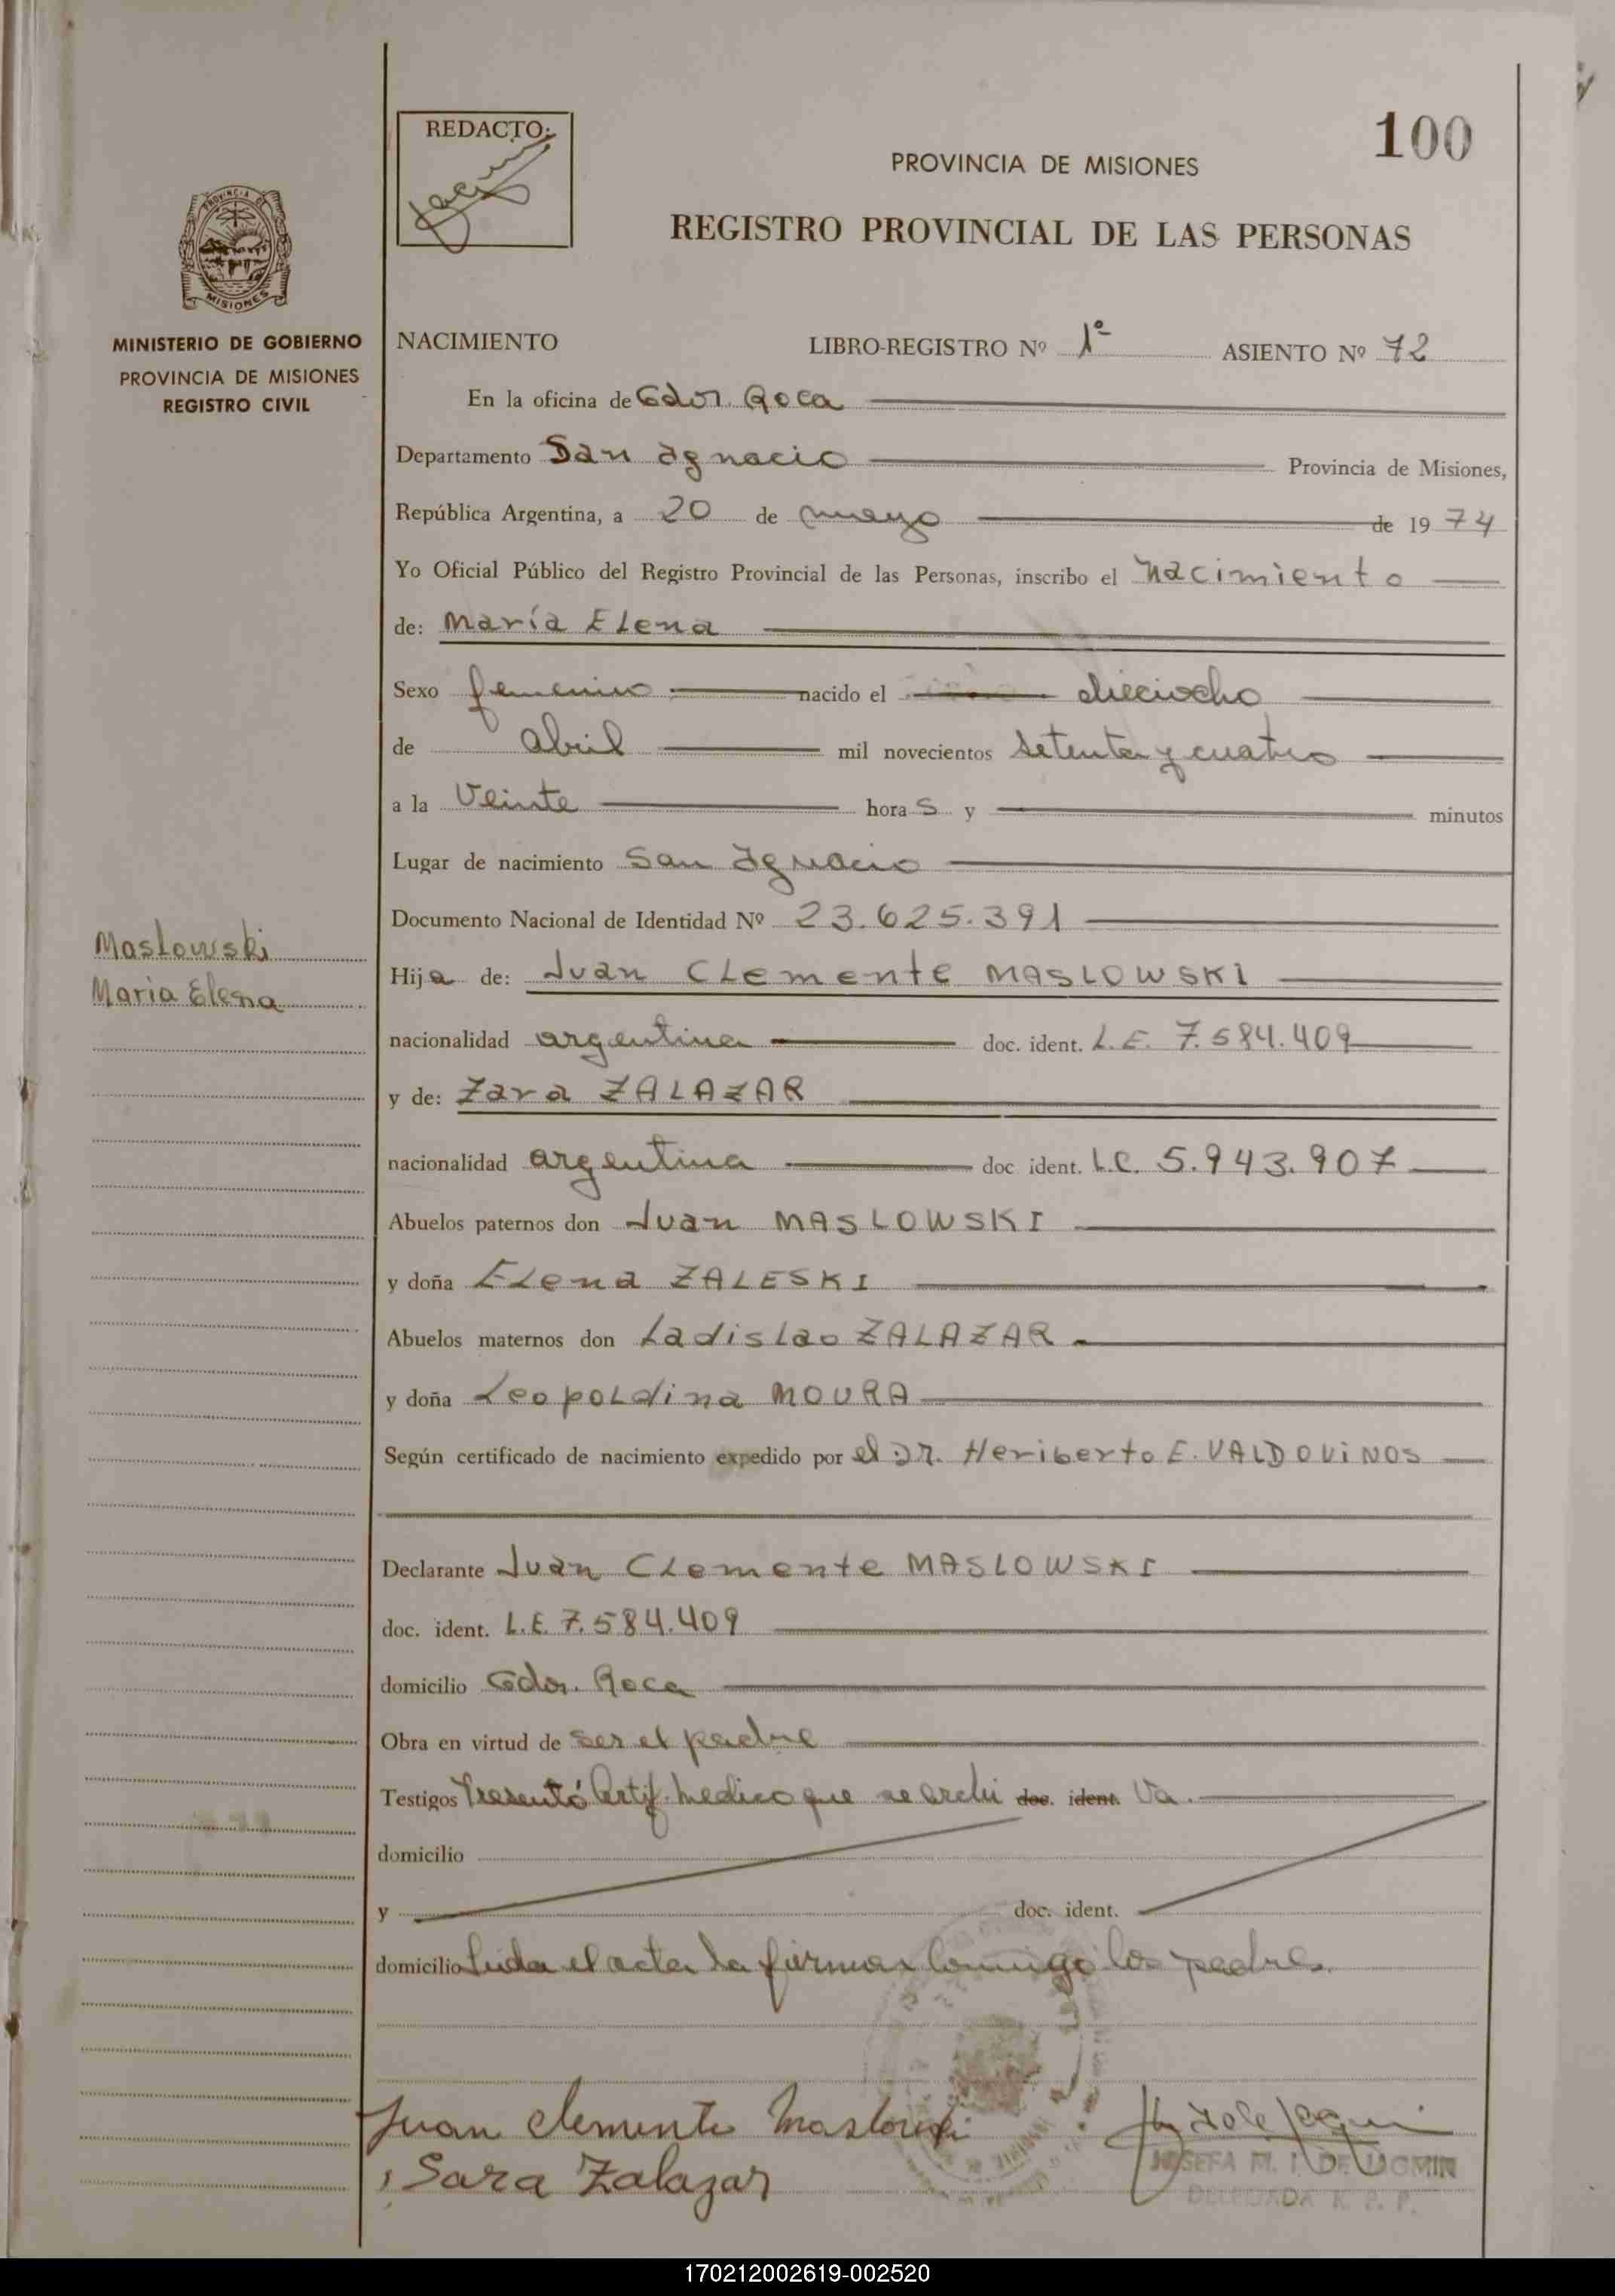 100
REDACTO:
PROVINCIA DE MISIONES
REGISTRO PROVINCIAL DE LAS PERSONAS
PROVINCIA DE
MISIONES
MINISTERIO DE GOBIERNO
PROVINCIA DE MISIONES
REGISTRO CIVIL
NACIMIENTO LIBRO-REGISTRO Nº 1º ASIENTO Nº 72
En la oficina de Gdor. Roca
Departamento San Ignacio Provincia de Misiones,
República Argentina, a 20 de mayo de 1974
Yo Oficial Público del Registro Provincial de las Personas, inscribo el nacimiento
de: María Elena
Sexo femenino nacido el dieciocho
de abril mil novecientos setenta y cuatro
a la Veinte hora s y minutos
Lugar de nacimiento San Ignacio
Documento Nacional de Identidad Nº 23.625.391
Maslowski
Maria Elena
Hija de: Juan Clemente MASLOWSKI
nacionalidad argentina doc. ident. L.E. 7.584.409
y de: Zara ZALAZAR
nacionalidad argentina doc ident. L.C. 5.943.907
Abuelos paternos don Juan MASLOWSKI
y doña Elena ZALESKI
Abuelos maternos don Ladislao ZALAZAR
y doña Leopoldina MOURA
Según certificado de nacimiento expedido por el Dr. Heriberto E. VALDOVINOS
Declarante Juan Clemente MASLOWSKI
doc. ident. L.E. 7.584.409
domicilio Gdor. Roca
Obra en virtud de ser el padre
Testigos Presentó Certif. medico que se archi doc. ident. va.
domicilio
y doc. ident.
domicilio Leida el acta la firman conmigo los padres.
Juan Clemente Maslowski
Sara Zalazar
JOSEFA M. I. DE
DELEGADA R. P. P.
170212002619-002520